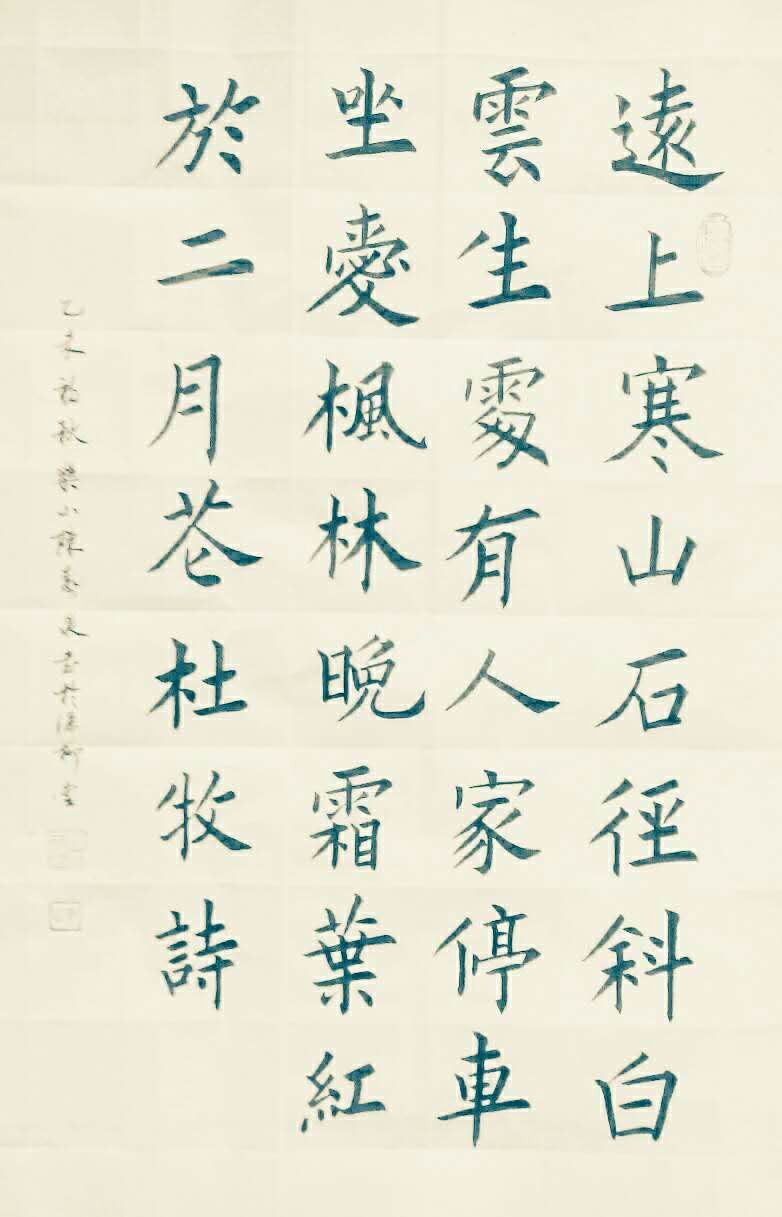 遠上寒山石徑斜白
雲生處有人家停車
坐愛楓林晚霜葉紅
於二月花杜牧詩
乙未初秋樂山陳書於